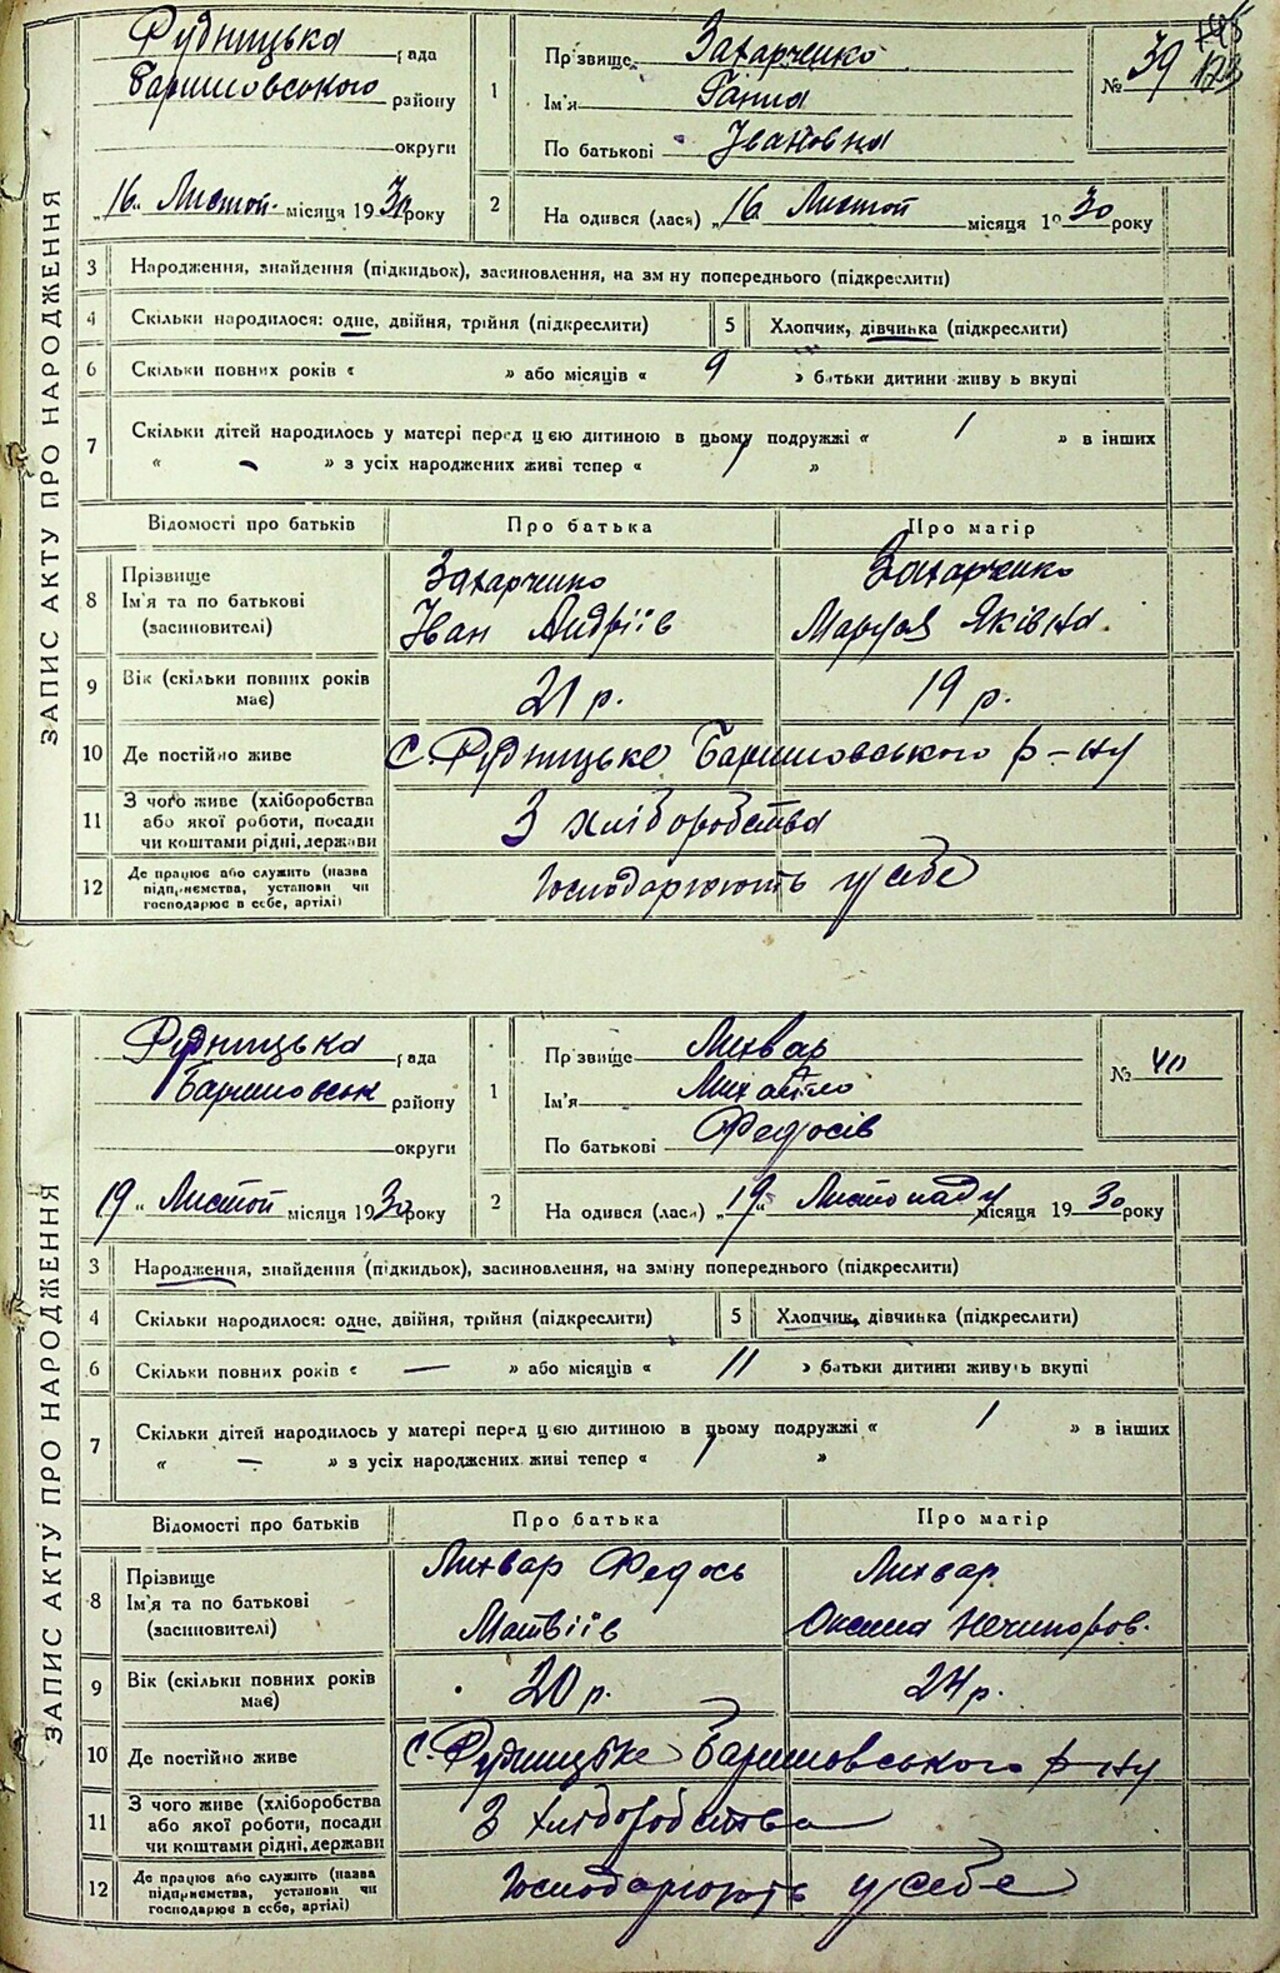 ЗАПИС АКТУ ПРО НАРОДЖЕННЯ
Рудницька рада
Баришовського району
округи
„16“ Листоп. місяця 1930 року
1
Прізвище Захарченко
Ім'я Ганна
По батькові Івановна
№ 39
2 На одився (лася) „16 Листоп місяця 19 30 року
3 Народження, знайдення (підкидьок), засиновлення, на зміну попереднього (підкреслити)
4 Скільки народилося: одне, двійня, трійня (підкреслити) 5 Хлопчик, дівчинка (підкреслити)
6 Скільки повних років « » або місяців « 9 » батьки дитини живуть вкупі
7 Скільки дітей народилось у матері перед цією дитиною в цьому подружжі « 1 » в інших
« - » з усіх народжених живі тепер « 1 »
Відомості про батьків Про батька Про матір
8 Прізвище
Ім'я та по батькові
(засиновителі)
Захарченко
Іван Андріїв
Захарченко
Маруся Яківна.
9 Вік (скільки повних років має) 21 р. 19 р.
10 Де постійно живе с. Рудницьке Баришовського р-ну
11 З чого живе (хліборобства
або якої роботи, посади
чи коштами рідні, держави
З хліборобства
12 Де працює або служить (назва
підприємства, установи чи
господарює в себе, артілі)
Господарюють у себе
ЗАПИС АКТУ ПРО НАРОДЖЕННЯ
Рудницька рада
Баришовськ району
округи
19“ Листоп місяця 1930 року
1
Прізвище Лихвар
Ім'я Михайло
По батькові Федосів
№ 40
2 На одився (лася) „19“ Листопаду місяця 1930 року
3 Народження, знайдення (підкидьок), засиновлення, на зміну попереднього (підкреслити)
4 Скільки народилося: одне, двійня, трійня (підкреслити) 5 Хлопчик, дівчинка (підкреслити)
6 Скільки повних років « — » або місяців « 11 » батьки дитини живуть вкупі
7 Скільки дітей народилось у матері перед цією дитиною в цьому подружжі « 1 » в інших
« — » з усіх народжених живі тепер « 1 »
Відомості про батьків Про батька Про матір
8 Прізвище
Ім'я та по батькові
(засиновителі)
Лихвар Федось
Матвіїв
Лихвар
Оксана Нечипоров.
9 Вік (скільки повних років має) 20 р. 24 р.
10 Де постійно живе с. Рудницьке Баришовського р-ну
11 З чого живе (хліборобства
або якої роботи, посади
чи коштами рідні, держави
З хліборобства
12 Де працює або служить (назва
підприємства, установи чи
господарює в себе, артілі)
Господарюють у себе